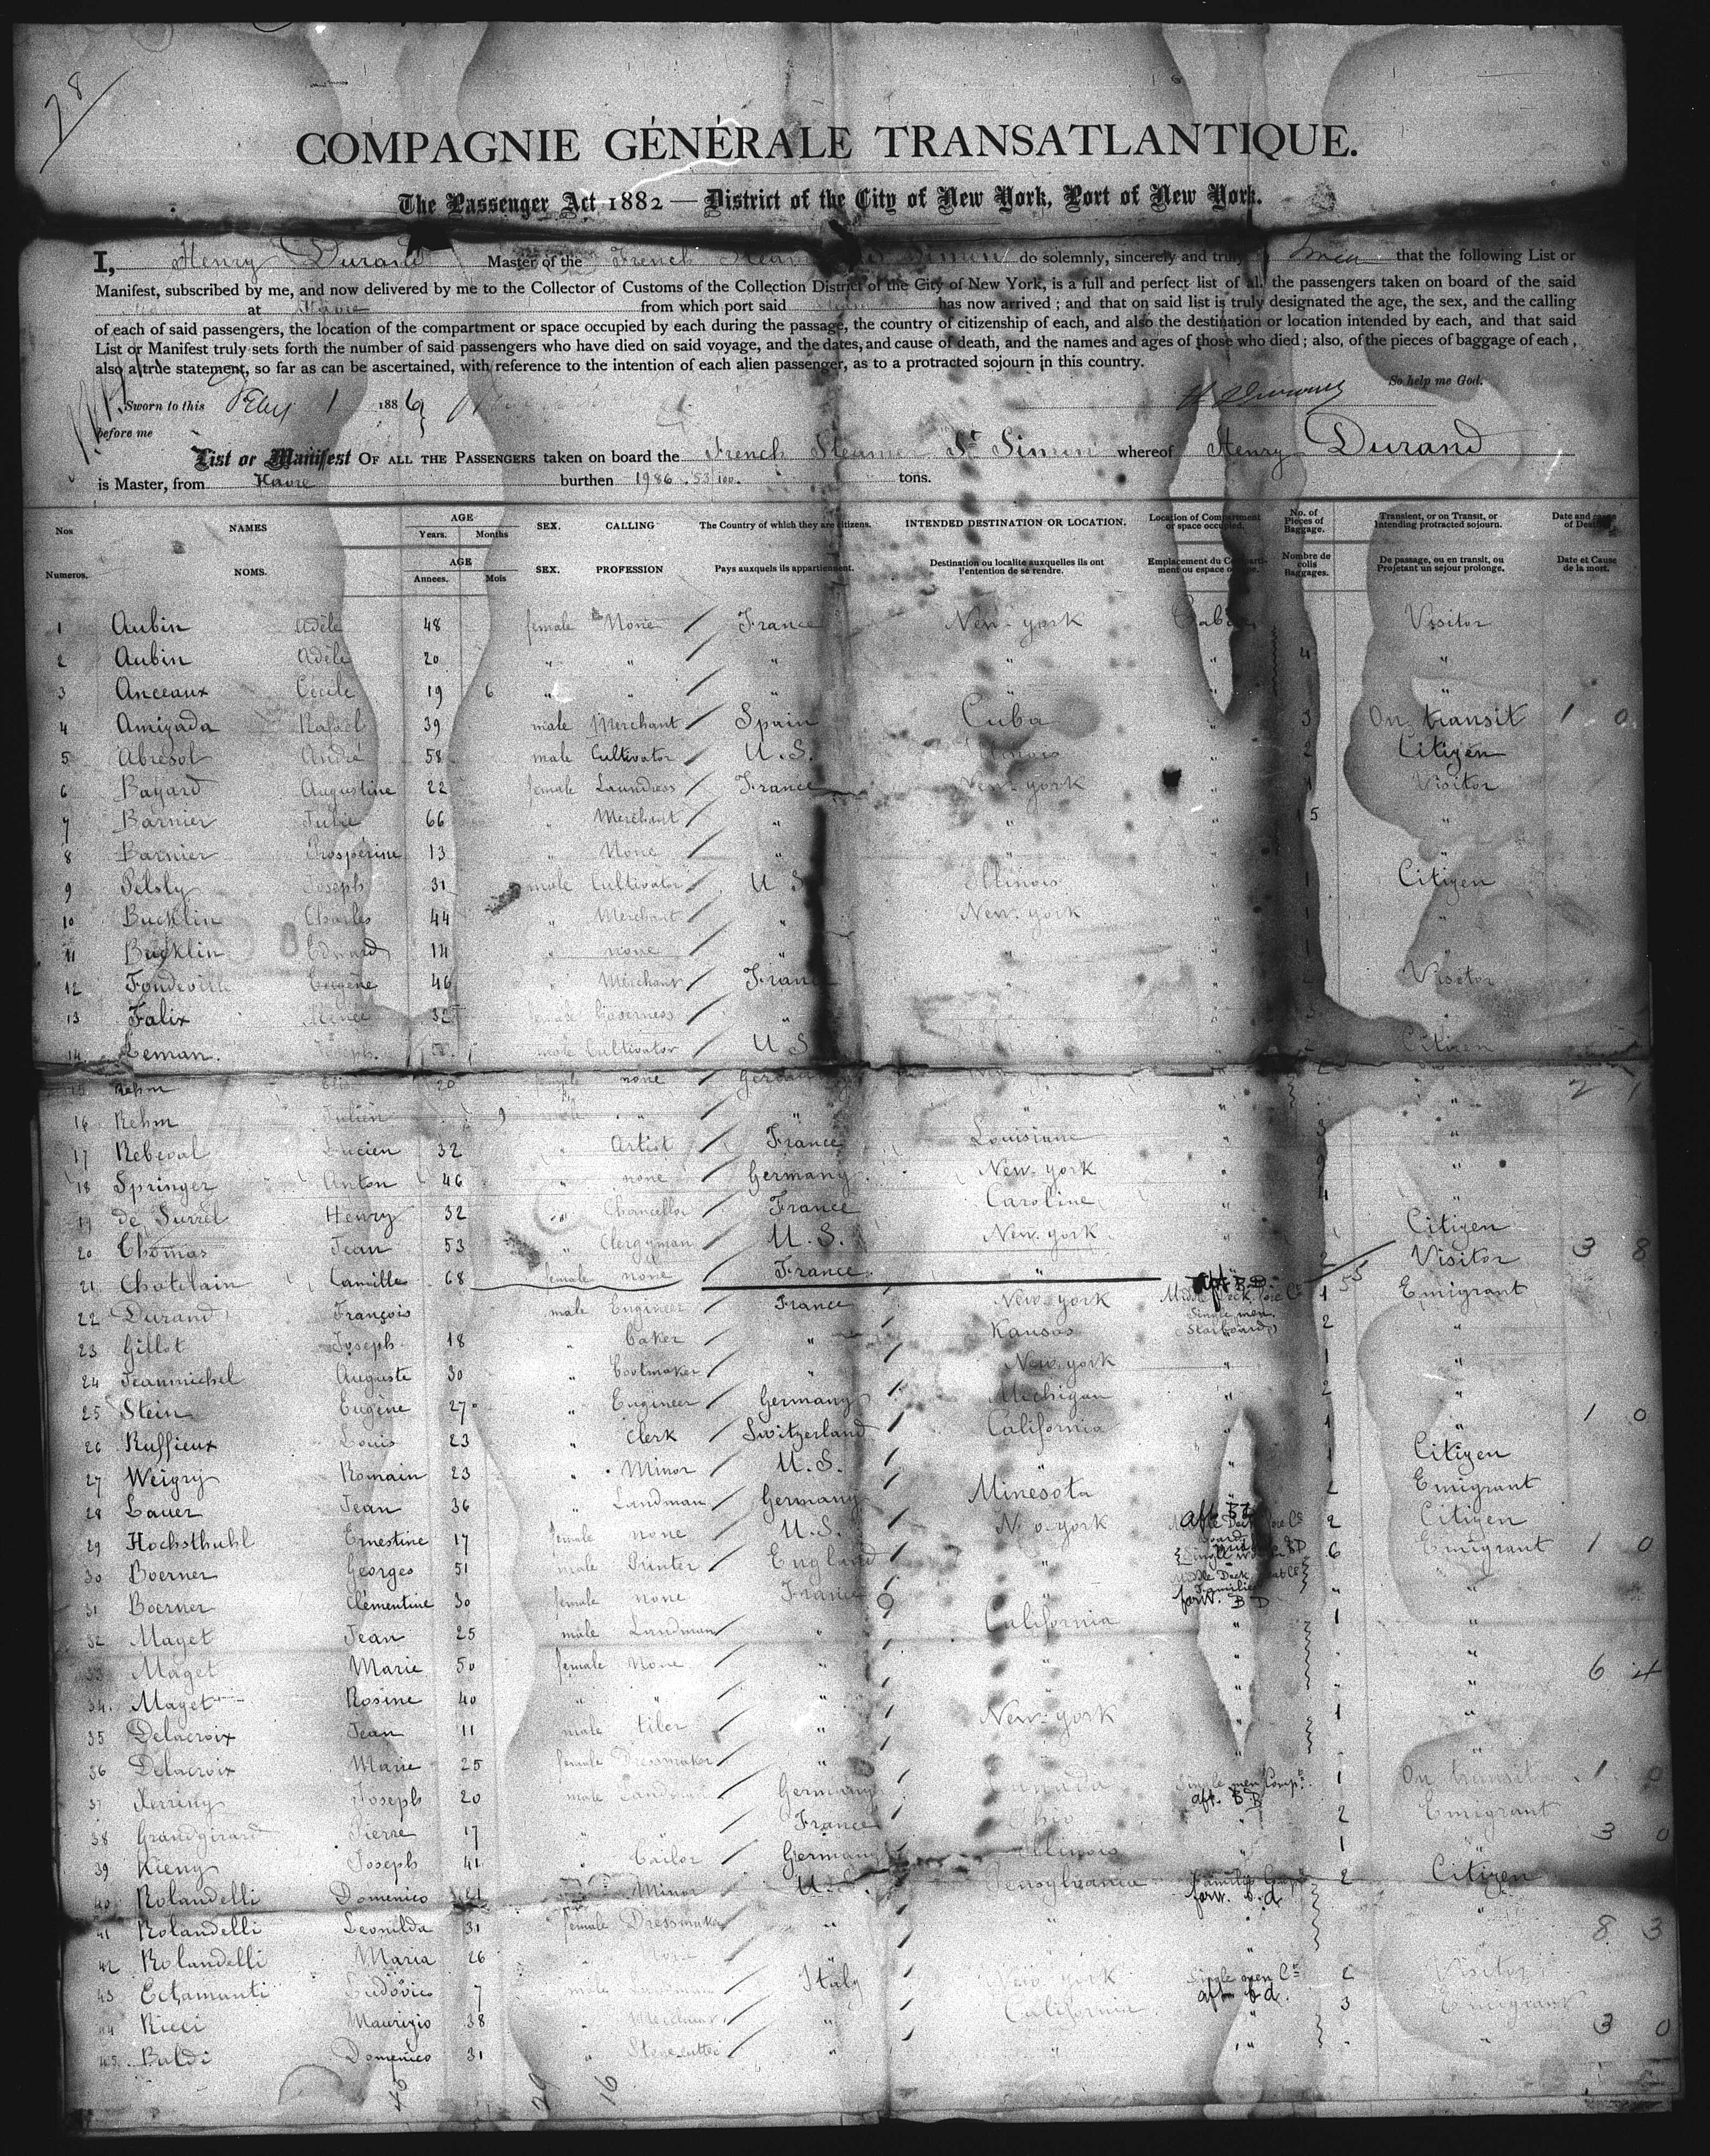 78
COMPAGNIE GÉNÉRALE TRANSATLANTIQUE.
The Passenger Act 1882 — District of the City of New York, Port of New York.
I, Henry Durand Master of the French Steamer St Simon do solemnly, sincerely and truly that the following List or
Manifest, subscribed by me, and now delivered by me to the Collector of Customs of the Collection District of the City of New York, is a full and perfect list of all the passengers taken on board of the said
at Havre from which port said has now arrived ; and that on said list is truly designated the age, the sex, and the calling
of each of said passengers, the location of the compartment or space occupied by each during the passage, the country of citizenship of each, and also the destination or location intended by each, and that said
List or Manifest truly sets forth the number of said passengers who have died on said voyage, and the dates, and cause of death, and the names and ages of those who died ; also, of the pieces of baggage of each ,
also a true statement, so far as can be ascertained, with reference to the intention of each alien passenger, as to a protracted sojourn in this country.
So help me God.
Sworn to this Feby 1 1886
before me
List or Manifest OF ALL THE PASSENGERS taken on board the French Steamer St Simon whereof Henry Durand
is Master, from Havre burthen 1986.53/100. tons.
Nos NAMES AGE Years. Months SEX. CALLING The Country of which they are citizens. INTENDED DESTINATION OR LOCATION. Location of Compartment or space occupied. No. of Pieces of Baggage. Transient, or on Transit, or Intending protracted sojourn. Date and cause of Death.
Numeros. NOMS. AGE Annees. Mois SEX. PROFESSION Pays auxquels ils appartiennent. Destination ou localite auxquelles ils ont l'entention de se rendre. Emplacement du Compartiment ou espace occupe. Nombre de colis Baggages. De passage, ou en transit, ou Projetant un sejour prolonge. Date et Cause de la mort.
1 Aubin Adèle 48 female None France New-york Cabin Visitor
2 Aubin Adèle 20 " " " " 4 "
3 Anceaux Cécile 19 6 " " " " " "
4 Amigada Rafael 39 male Merchant Spain Cuba " 3 On transit 1 0
5 Abresol André 58 male Cultivator U.S. Illinois " 2 Citizen
6 Bayard Augustine 22 female Laundress France New-york " 1 Visitor
7 Barnier Julie 66 " Merchant " " " 5 "
8 Barnier Prosperine 13 " None " " "
9 Pelsly Joseph 31 male Cultivator U S Illinois " 1 Citizen
10 Bucklin Charles 44 " Merchant " New-york " 1 "
11 Bucklin Edward 14 " none " " " 1 "
12 Fondeville Eugène 46 " Merchant France " " Visitor
13 Falix 32 female Governess " " 3 "
14 Leman. Joseph. male Cultivator U S " " 2 Citizen
15 Rehm 20 none Germany " 2 1
16 Rehm Julien 9 " " " " "
17 Rebeval Lucien 32 " Artist France Louisiane " 3 "
18 Springer Anton 46 " none Germany New-york " "
19 de Surrel Henry 32 " Chancellor France Caroline " 4 "
20 Thomas Jean 53 " Clergyman U.S. New-york " Citizen
21 Chatelain Camille 68 female none France " 2 Visitor 3 8
55
22 Durand François male Engineer France New-york aft B.D. Single men Starboard 1 Emigrant
23 Gillot Joseph 18 " Baker " Kansas 2 "
24 Jeanmichel Auguste 30 " Bootmaker " New-york " 1 "
25 Stein Eugène 27 " Engineer Germany Michigan " 2 "
26 Ruffieux Louis 23 " Clerk Switzerland California " 1 " 1 0
27 Weigry Romain 23 " Minor U.S. " " 1 Citizen
28 Lauer Jean 36 " Landman Germany Minesota " 2 Emigrant
29 Hochsthuhl Ernestine 17 female none U.S. New-york aft B D 2 Citizen
30 Boerner Georges 51 male Printer England " 6 Emigrant 1 0
31 Boerner Clémentine 30 female none France " forw. B D " "
32 Maget Jean 25 male Landman " California " 1 "
33 Maget Marie 50 female None " " " "
34. Maget Rosine 40 " " " " " " " 6 4
35 Delacroix Jean 11 male tiler " New-york " 1
36 Delacroix Marie 25 female Dressmaker " " "
37 Joseph 20 male Landman Germany Canada Single men Compt. aft. B.D 1 On transit 1 0
38 Grandgirard Pierre 17 " France Ohio " 2 Emigrant
39 Kieny Joseph 41 " Tailor Germany Illinois " 1 " 3 0
40 Rolandelli Domenico " Minor U.S. Pensylvania Family forw. b.d 2 Citizen
41 Rolandelli Leonilda 31 female Dressmaker " " " "
42 Rolandelli Maria 26 " None " " 8 3
43 Ectamanti Ludovico 7 male Landman Italy New-york Single men aft b.d. 2 Visitor
44 Ricci Maurizio 38 " " California " 3 Emigrant
45. Baldi Domenico 31 " Stonecutter " " " " " 3 0
16